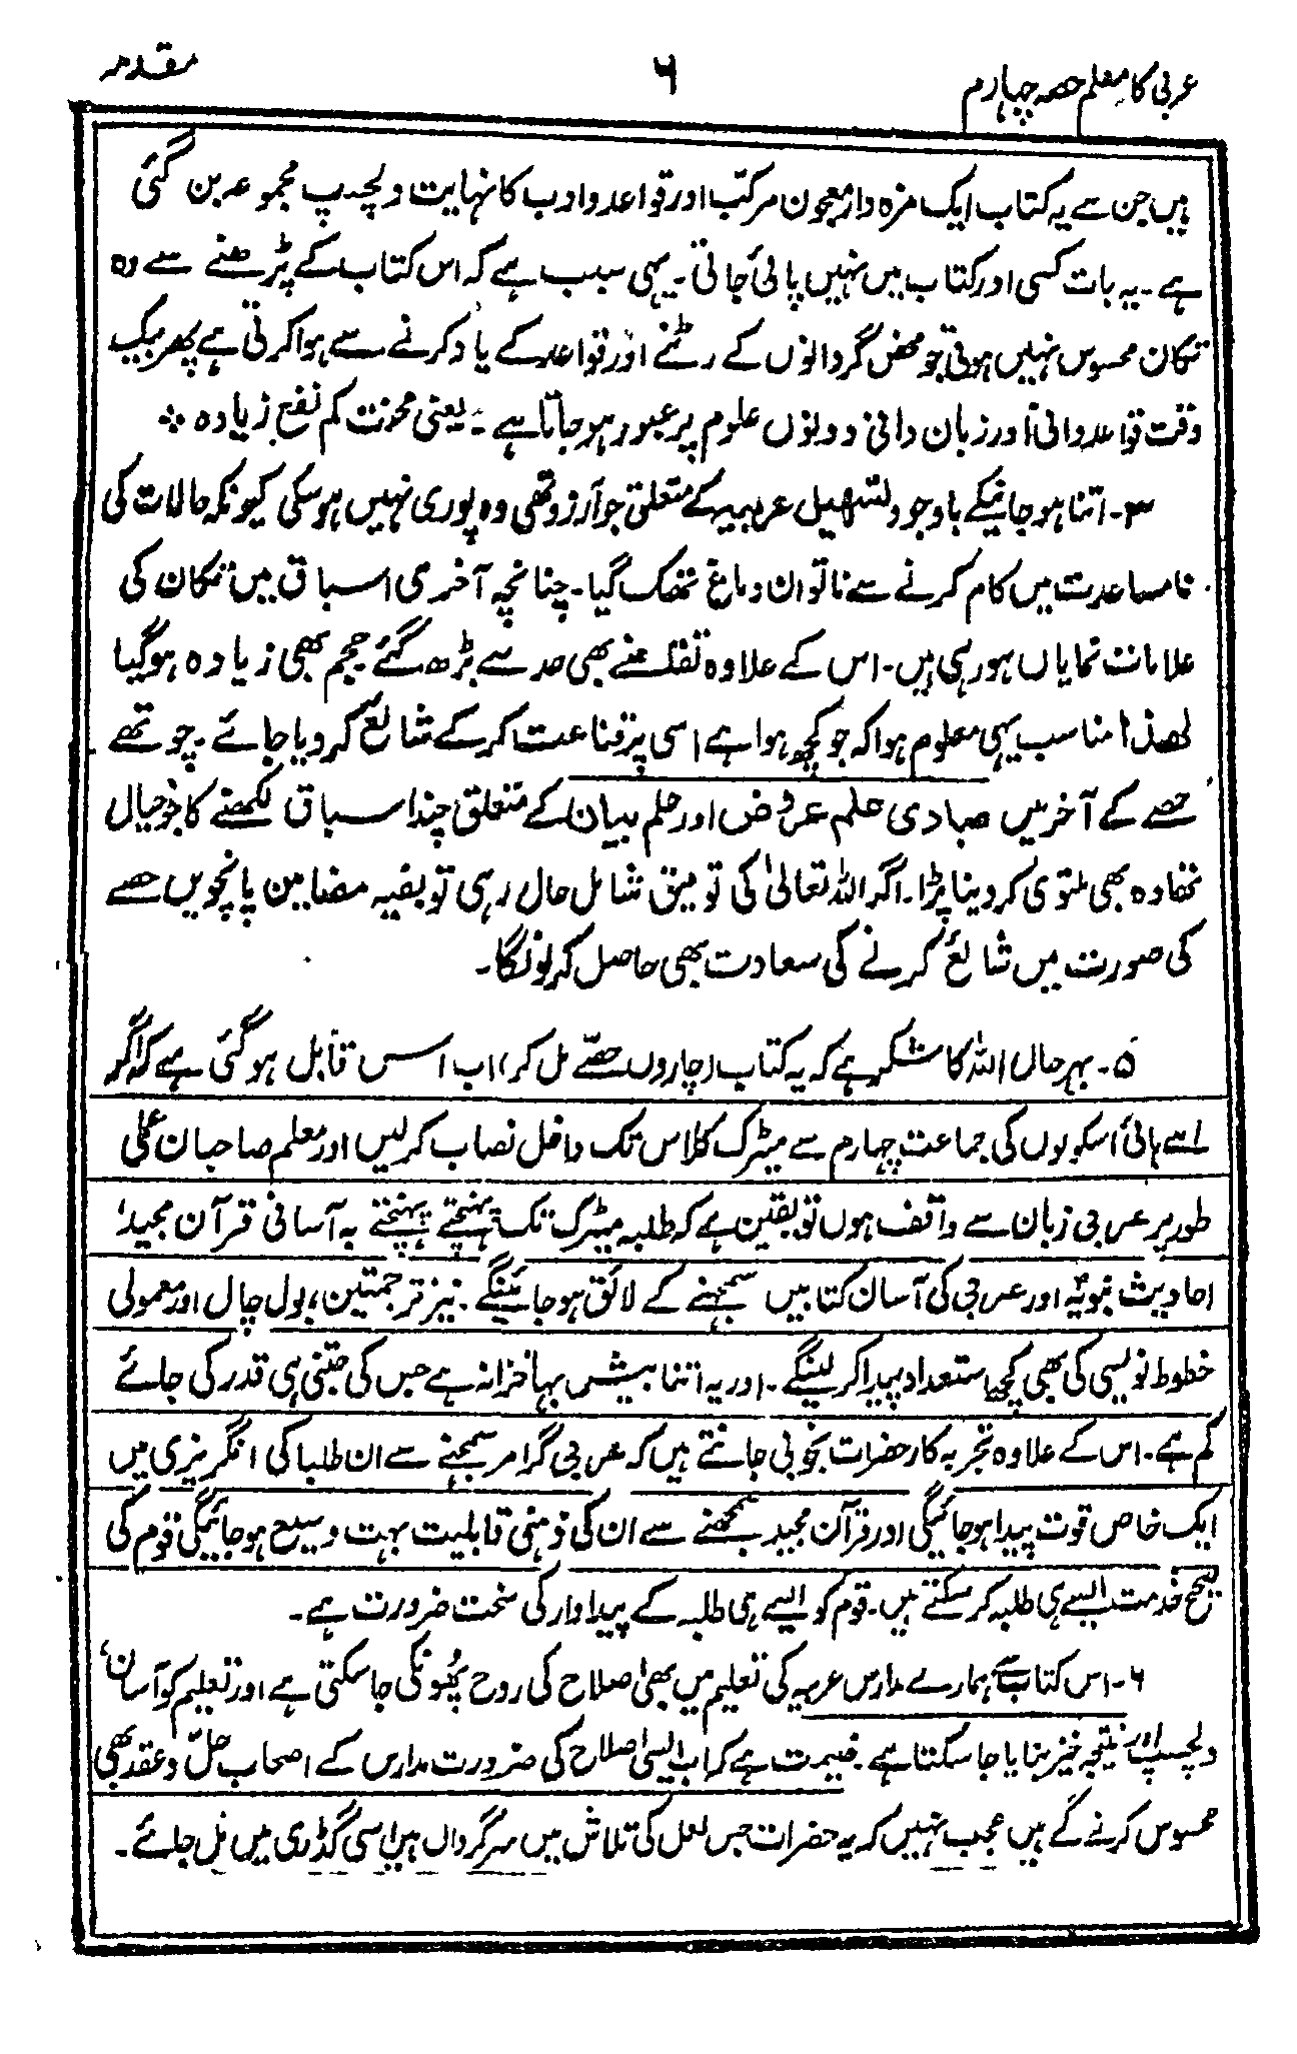 عربی کا معلم حصہ چہارم
۶
مقدمہ
ہیں جن سے یہ کتاب ایک مزہ دار معجون مرکّب اور قواعد و ادب کا نہایت دلچسپ مجموعہ بن گئی
ہے۔ یہ بات کسی اور کتاب میں نہیں پائی جاتی۔ یہی سبب ہے کہ اس کتاب کے پڑھنے سے وہ
تکان محسوس نہیں ہوتی جو محض گردانوں کے رٹنے اور قواعد کے یاد کرنے سے ہوا کرتی ہے پھر بیک
وقت قواعد دانی اور زبان دانی دونوں علوم پر عبور ہو جاتا ہے۔ یعنی محنت کم نفع زیادہ ❖
۴۔ اتنا ہو جانیکے باوجود تسہیل عربیہ کے متعلق جو آرزو تھی وہ پوری نہیں ہو سکی کیونکہ حالات کی
نامساعدت میں کام کرنے سے ناتوان دماغ تھک گیا۔ چنانچہ آخری اسباق میں تکان کی
علامات نمایاں ہو رہی ہیں۔ اس کے علاوہ تقاضے بھی حد سے بڑھ گئے حجم بھی زیادہ ہو گیا
لھذا مناسب یہی معلوم ہوا کہ جو کچھ ہوا ہے اسی پر قناعت کر کے شائع کر دیا جائے۔ چوتھے
حصے کے آخر میں مبادی علم عروض اور علم بیان کے متعلق چند اسباق لکھنے کا جو خیال
تھا وہ بھی ملتوی کر دینا پڑا۔ اگر اللہ تعالیٰ کی توفیق شامل حال رہی تو بقیہ مضامین پانچویں حصے
کی صورت میں شائع کرنے کی سعادت بھی حاصل کر لونگا۔
۵۔ بہر حال اللہ کا شکر ہے کہ یہ کتاب (چاروں حصّے مل کر) اب اس قابل ہو گئی ہے کہ اگر
اسے ہائی اسکولوں کی جماعت چہارم سے میٹرک کلاس تک داخل نصاب کر لیں اور معلم صاحبان عملی
طور پر عربی زبان سے واقف ہوں تو یقین ہے کہ طلبہ میٹرک تک پہنچتے پہنچتے بہ آسانی قرآن مجید،
احادیث نبویہؐ اور عربی کی آسان کتابیں سمجھنے کے لائق ہو جائینگے۔ نیز ترجمتین، بول چال اور معمولی
خطوط نویسی کی بھی کچھ استعداد پیدا کر لینگے۔ اور یہ اتنا بیش بہا خزانہ ہے جس کی جتنی ہی قدر کی جائے
کم ہے۔ اس کے علاوہ تجربہ کار حضرات بخوبی جانتے ہیں کہ عربی گرامر سمجھنے سے ان طلبا کی انگریزی میں
ایک خاص قوت پیدا ہو جائیگی اور قرآن مجید سمجھنے سے ان کی ذہنی قابلیت بہت وسیع ہو جائیگی قوم کی
صحیح خدمت ایسے ہی طلبہ کر سکتے ہیں۔ قوم کو ایسے ہی طلبہ کے پیداوار کی سخت ضرورت ہے۔
۶۔ اس کتاب سے ہمارے مدارس عربیہ کی تعلیم میں بھی اصلاح کی روح پھُونکی جا سکتی ہے اور تعلیم کو آسان،
دلچسپ اور نتیجہ خیز بنایا جا سکتا ہے۔ غنیمت ہے کہ اب ایسی اصلاح کی ضرورت مدارس کے اصحاب حلّ و عقد بھی
محسوس کرنے لگے ہیں عجب نہیں کہ یہ حضرات جس لعل کی تلاش میں سرگرداں ہیں اسی گڈری میں مل جائے۔